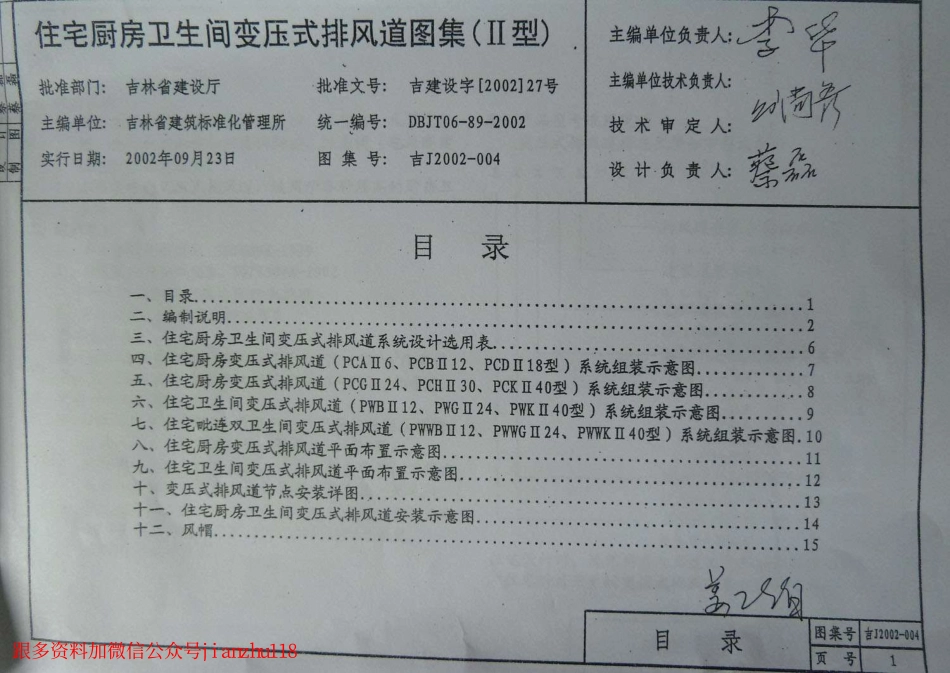 住宅厨房卫生间变压式排风道图集(Ⅱ型)
批准部门: 吉林省建设厅 批准文号: 吉建设字[2002]27号
主编单位: 吉林省建筑标准化管理所 统一编号: DBJT06-89-2002
实行日期: 2002年09月23日 图 集 号: 吉J2002-004
主编单位负责人:
主编单位技术负责人:
技 术 审 定 人:
设 计 负 责 人: 蔡磊
目 录
一、目录 1
二、编制说明 2
三、住宅厨房卫生间变压式排风道系统设计选用表 6
四、住宅厨房变压式排风道(PCAⅡ6、PCBⅡ12、PCDⅡ18型)系统组装示意图 7
五、住宅厨房变压式排风道(PCGⅡ24、PCHⅡ30、PCKⅡ40型)系统组装示意图 8
六、住宅卫生间变压式排风道(PWBⅡ12、PWGⅡ24、PWKⅡ40型)系统组装示意图 9
七、住宅毗连双卫生间变压式排风道(PWWBⅡ12、PWWGⅡ24、PWWKⅡ40型)系统组装示意图 10
八、住宅厨房变压式排风道平面布置示意图 11
九、住宅卫生间变压式排风道平面布置示意图 12
十、变压式排风道节点安装详图 13
十一、住宅厨房卫生间变压式排风道安装示意图 14
十二、风帽 15
目 录
图集号 吉J2002-004
页 号 1
跟多资料加微信公众号jianzhu118